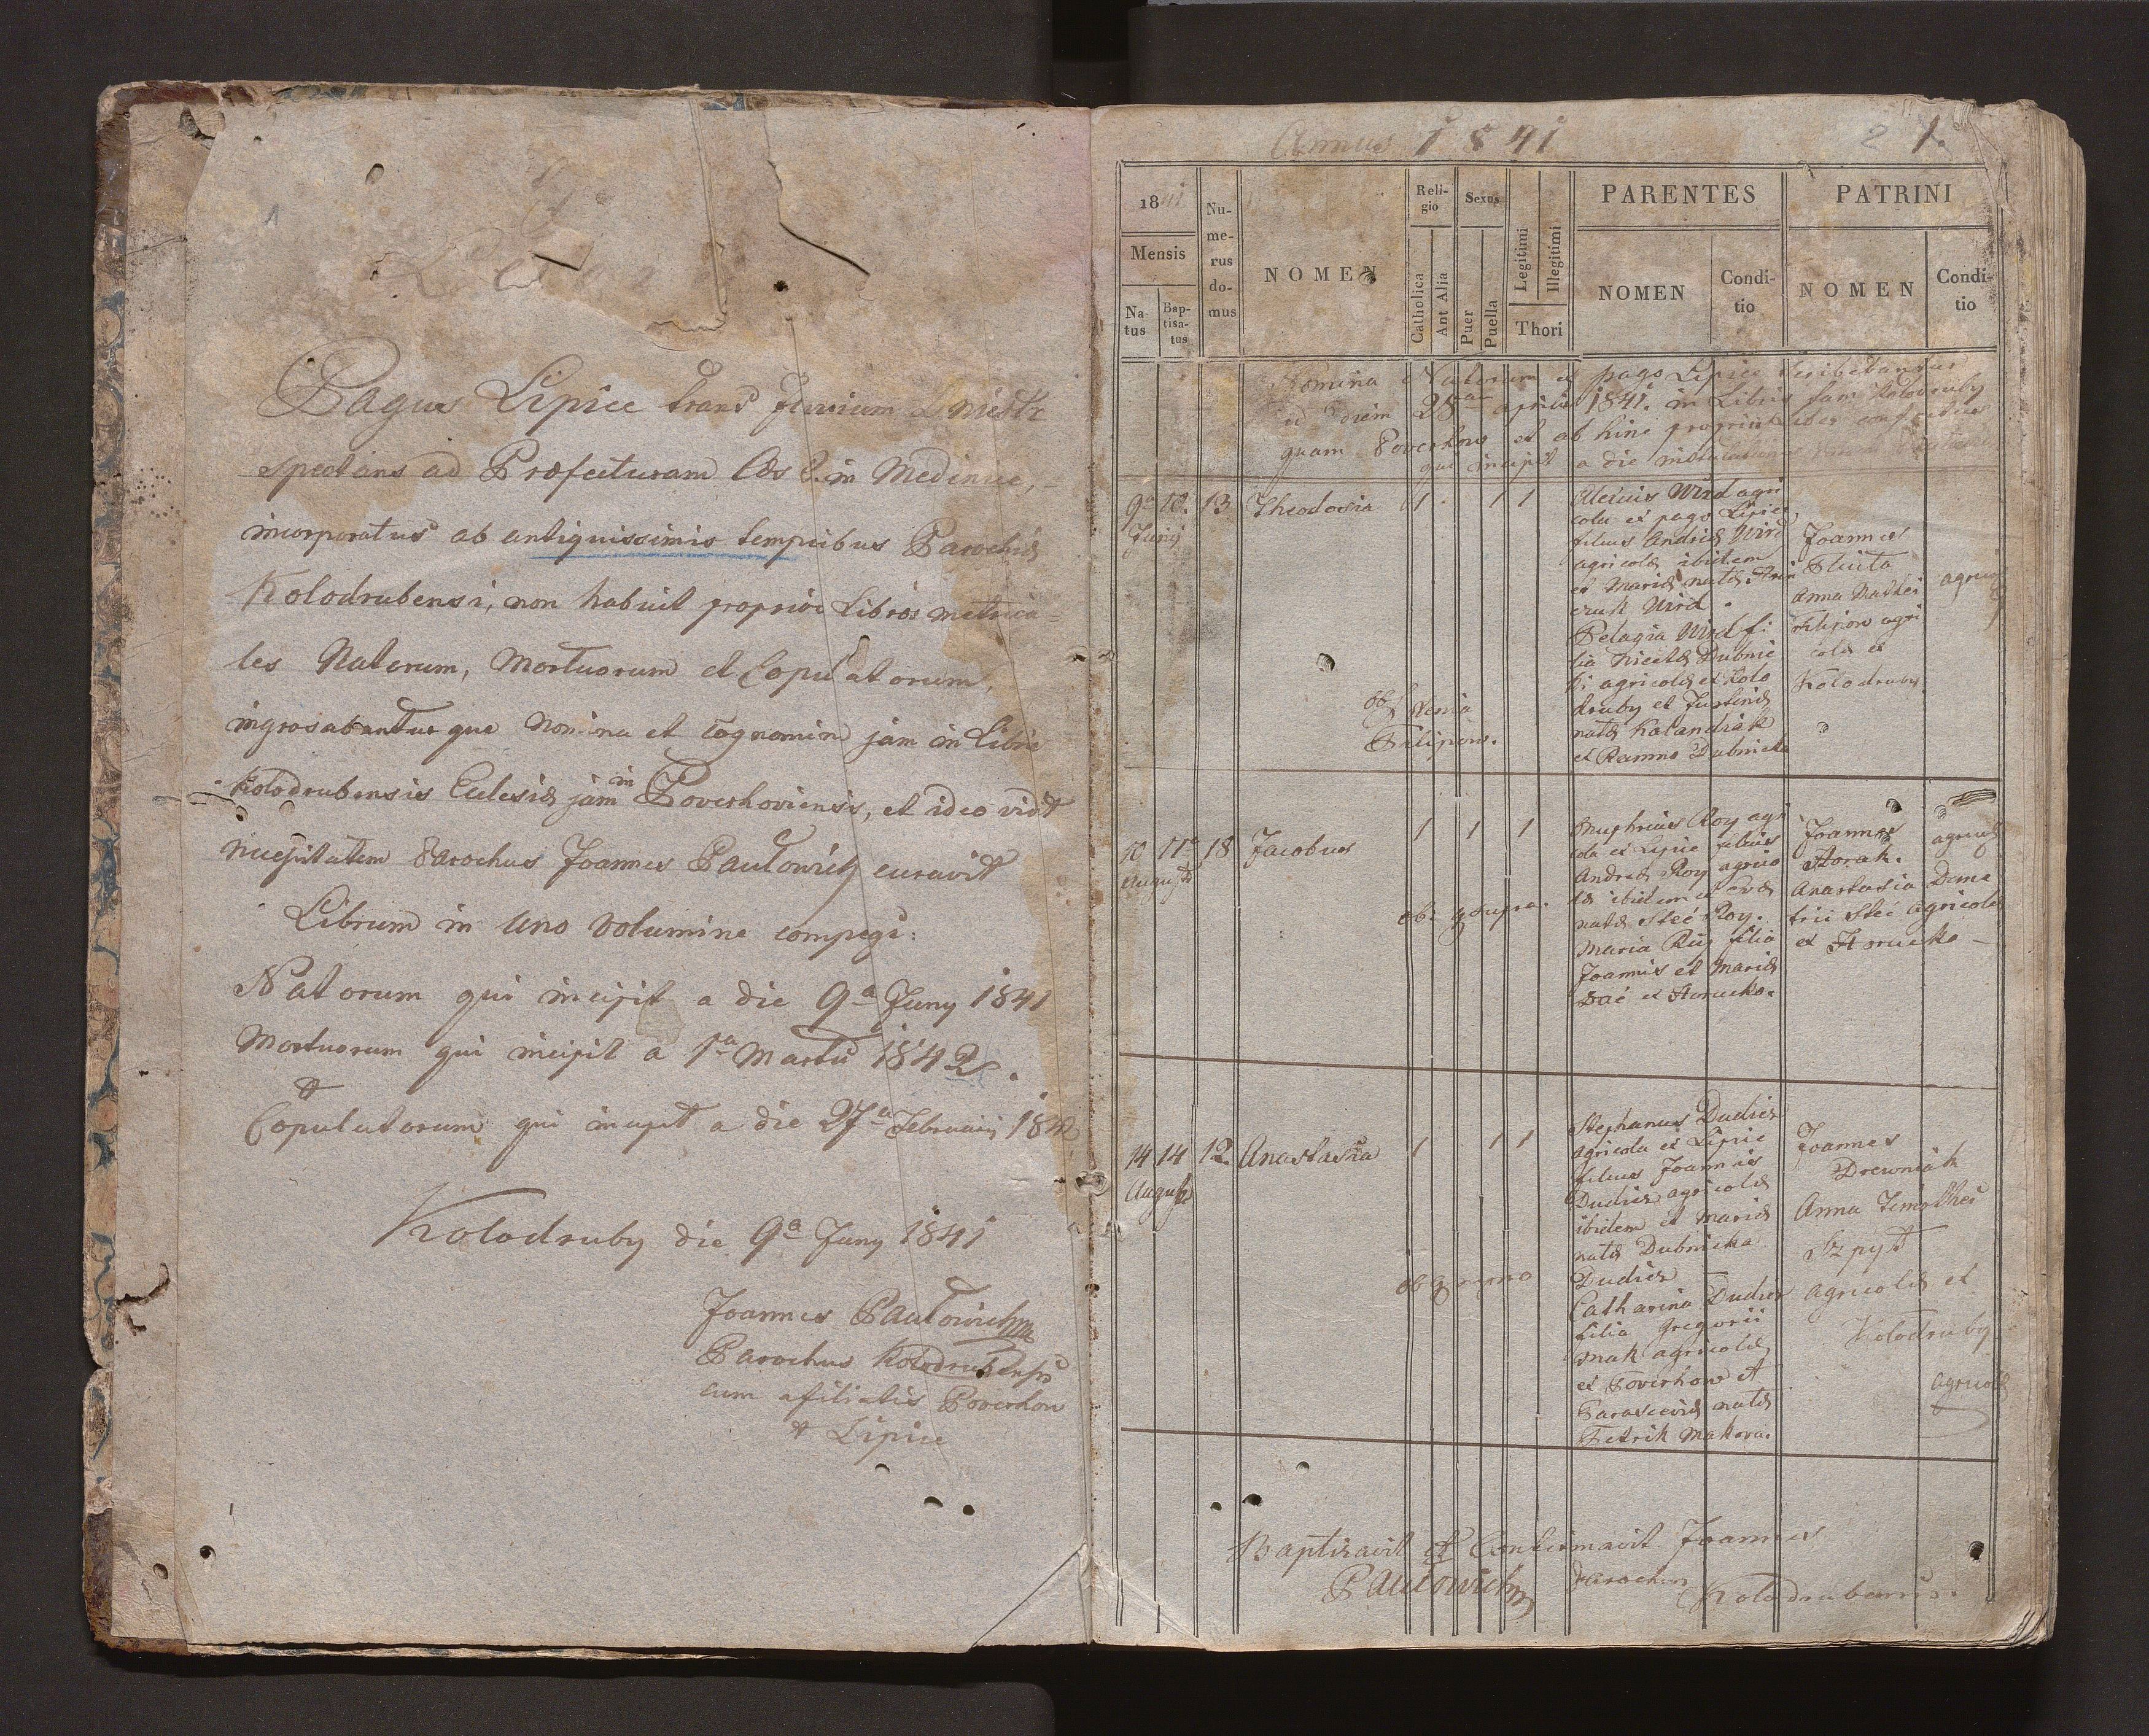 1
Pagus Lipice trans fluvium Dniestr
spectans ad Præfecturam in Medinice,
incorporatus ab antiquissimis temporibus Parochiæ
Kolodrubensi, non habuit proprios Libros metrica=
les Natorum, Mortuorum et Copulatorum,
ingrosabanturque Nomina et Cognomina jam in Libris
Kolodrubensis Eclesiæ jam in Powerhoviensis, et ideo vidit
necessitatem Parochus Joannes Pawlowicz curavit
Librum in uno volumine compegi:
Natorum qui incipit a die 9a Juny 1841
Mortuorum qui incipit a 1a Martii 1842.
et
Copulatorum qui incipit a die 27a Februarij 184
Kolodruby die 9a Juny 1841
Joannes Pawlowicz
Parochus Kolodrubensis
cum afiliatis Powerhow
et Lipice
Annus 1841
2 1
1841
Mensis
Na-
tus
Bap-
tisa-
tus
Nu-
me-
rus
do-
mus
NOMEN
Reli-
gio
Catholica
Aut Alia
Sexus
Puer
Puella
Legitimi
Illegitimi
Thori
PARENTES
NOMEN
Condi-
tio
PATRINI
NOMEN
Condi-
tio
Nomina Natorum ex pago Lipice scribebantur
ad diem 28am Aprilis 1841. in Libris tam Kolodruby
quam Powerhow et ab hinc proprius liber
qui incipit a die
9a 10. 13 Theodosia 1 1 1
Juny
Alexius Wird agri
cola ex pago Lipice,
filius Andreæ Wird
agricolæ ibidem
et Mariæ natæ
Wird.
Pelagia Wird fi
lia Nicetæ Dubnic
ki agricolæ ex Kolo
druby et Justinæ
natæ Kalandiak
et Dubnicka
Joannes
Anna Mathei
Filipow agri
colæ ex
Kolodruby.
agricolæ
obs. Xenia
Filipow.
10 11a 18 Jacobus 1 1 1
Augusti
Onuphrius Roy agri
cola ex Lipice filius
Andreæ Roy agrico
læ ibidem et Evæ
natæ Steć Roy.
Maria Roy filia
Joannis et Mariæ
ex Horucko.
Joannes
Horak.
Anastasia Deme
trii Steć agricolæ
ex Horucko
agricolæ
obs. q supra.
14 14 12. Anastasia 1 1 1
Augusti
Stephanus Dudicz
agricola ex Lipice
filius Joannis
Dudicz agricolæ
ibidem et Mariæ
natæ Dubnicka
Dudicz
Catharina Dudicz
filia Gregorii
Mak agricolæ
ex Powerhow et
Parascevæ natæ
Petrik Makowa.
Joannes
Drewniak
Anna Timothei
Szpyt
agricolæ ex
Kolodruby
agricolæ
obs q
Baptizavit et Confirmavit Joannes
Pawlowicz Parochus Kolodrubensis.